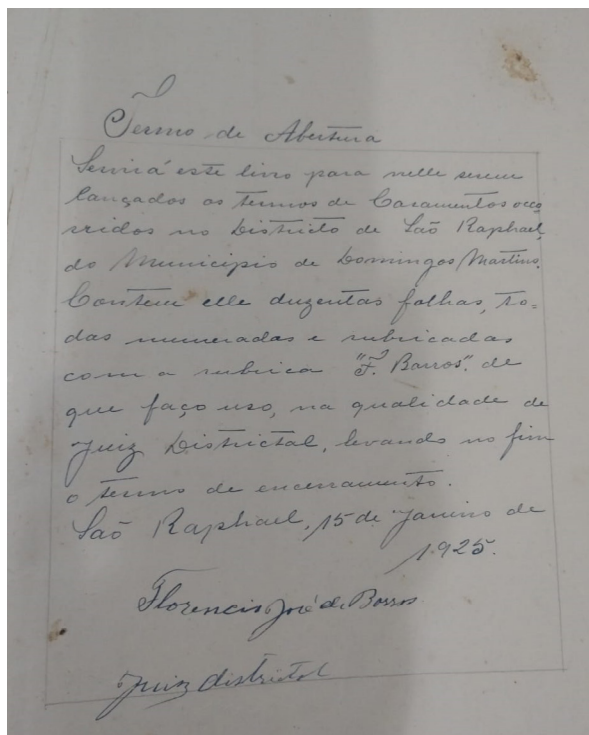 Termo de Abertura
Servirá este livro para nelle serem
lançados os termos de Casamentos occo
rridos no Districto de São Raphael,
do Municipio de Domingos Martins.
Contem elle duzentas folhas, to=
das numeradas e rubricadas
com a rubrica "F. Barros". de
que faço uso, na qualidade de
Juiz Districtal, levando no fim
o termo de encerramento.
São Raphael, 15 de Janeiro de
1925.
Florencio José de Barros
Juiz districtal